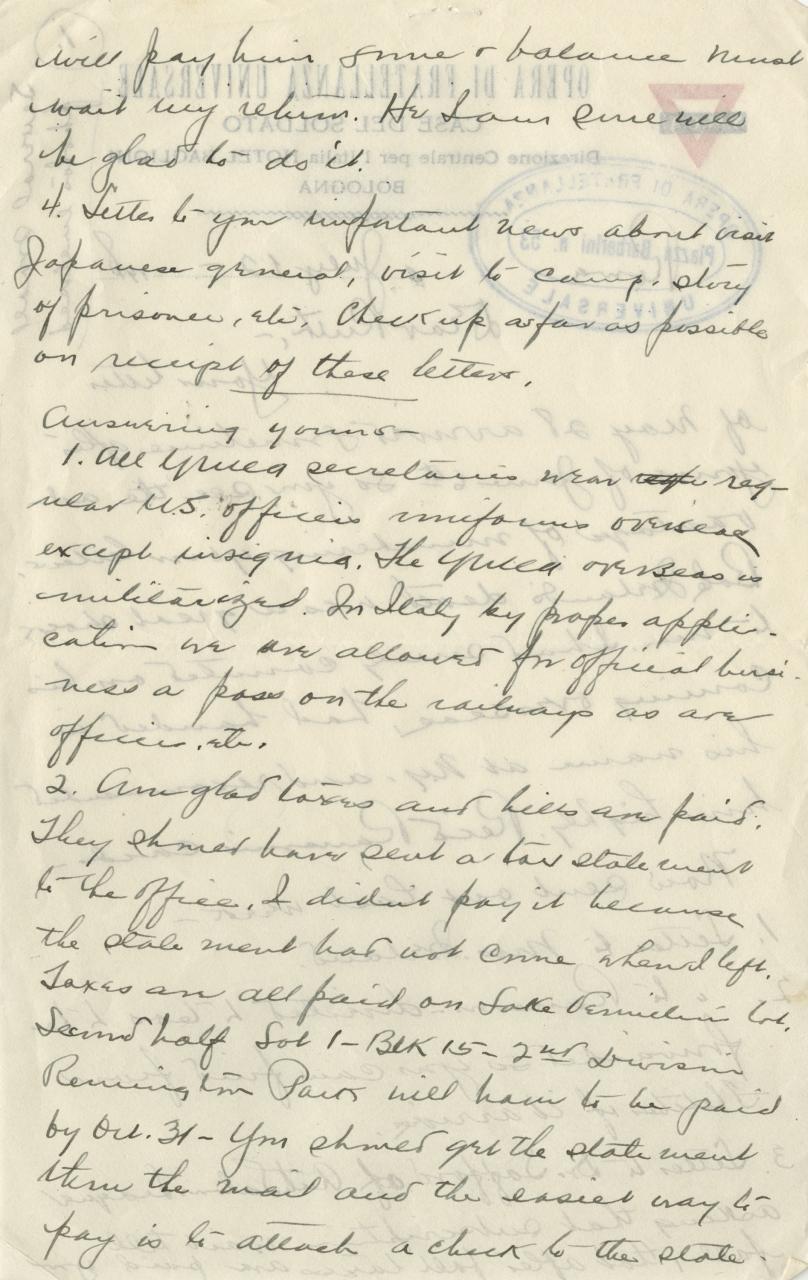 will pay him some & balance must
wait my return. He I am sure will
be glad to do it.
4. Letter to you important news about visit
Japanese general, visit to camp, story
of prisoner, etc. Check up as far as possible
on receipt of these letters.
Answering yours—
1. All YMCA secretaries wear reg-
ular U.S. officers uniforms overseas
except insignia. The YMCA overseas is
militarized. In Italy by proper appli-
cation we are allowed for official busi-
ness a pass on the railways as are
officers, etc.
2. Am glad taxes and bills are paid.
They should have sent a tax statement
to the office. I didn't pay it because
the statement had not come when I left.
Taxes are all paid on Lake lot.
Second half Lot 1 - Blk 15 - 2nd Division
Remington Park will have to be paid
by Oct. 31 - You should get the statement
thru the mail and the easiest way to
pay is to attach a check to the state-
OPERA DI FRATELLANZA UNIVERSALE
CASE DEL SOLDATO
Direzione Centrale per l'Italia
BOLOGNA
OPERA DI FRATELLANZA
UNIVERSALE
Piazza Barberini N. 53